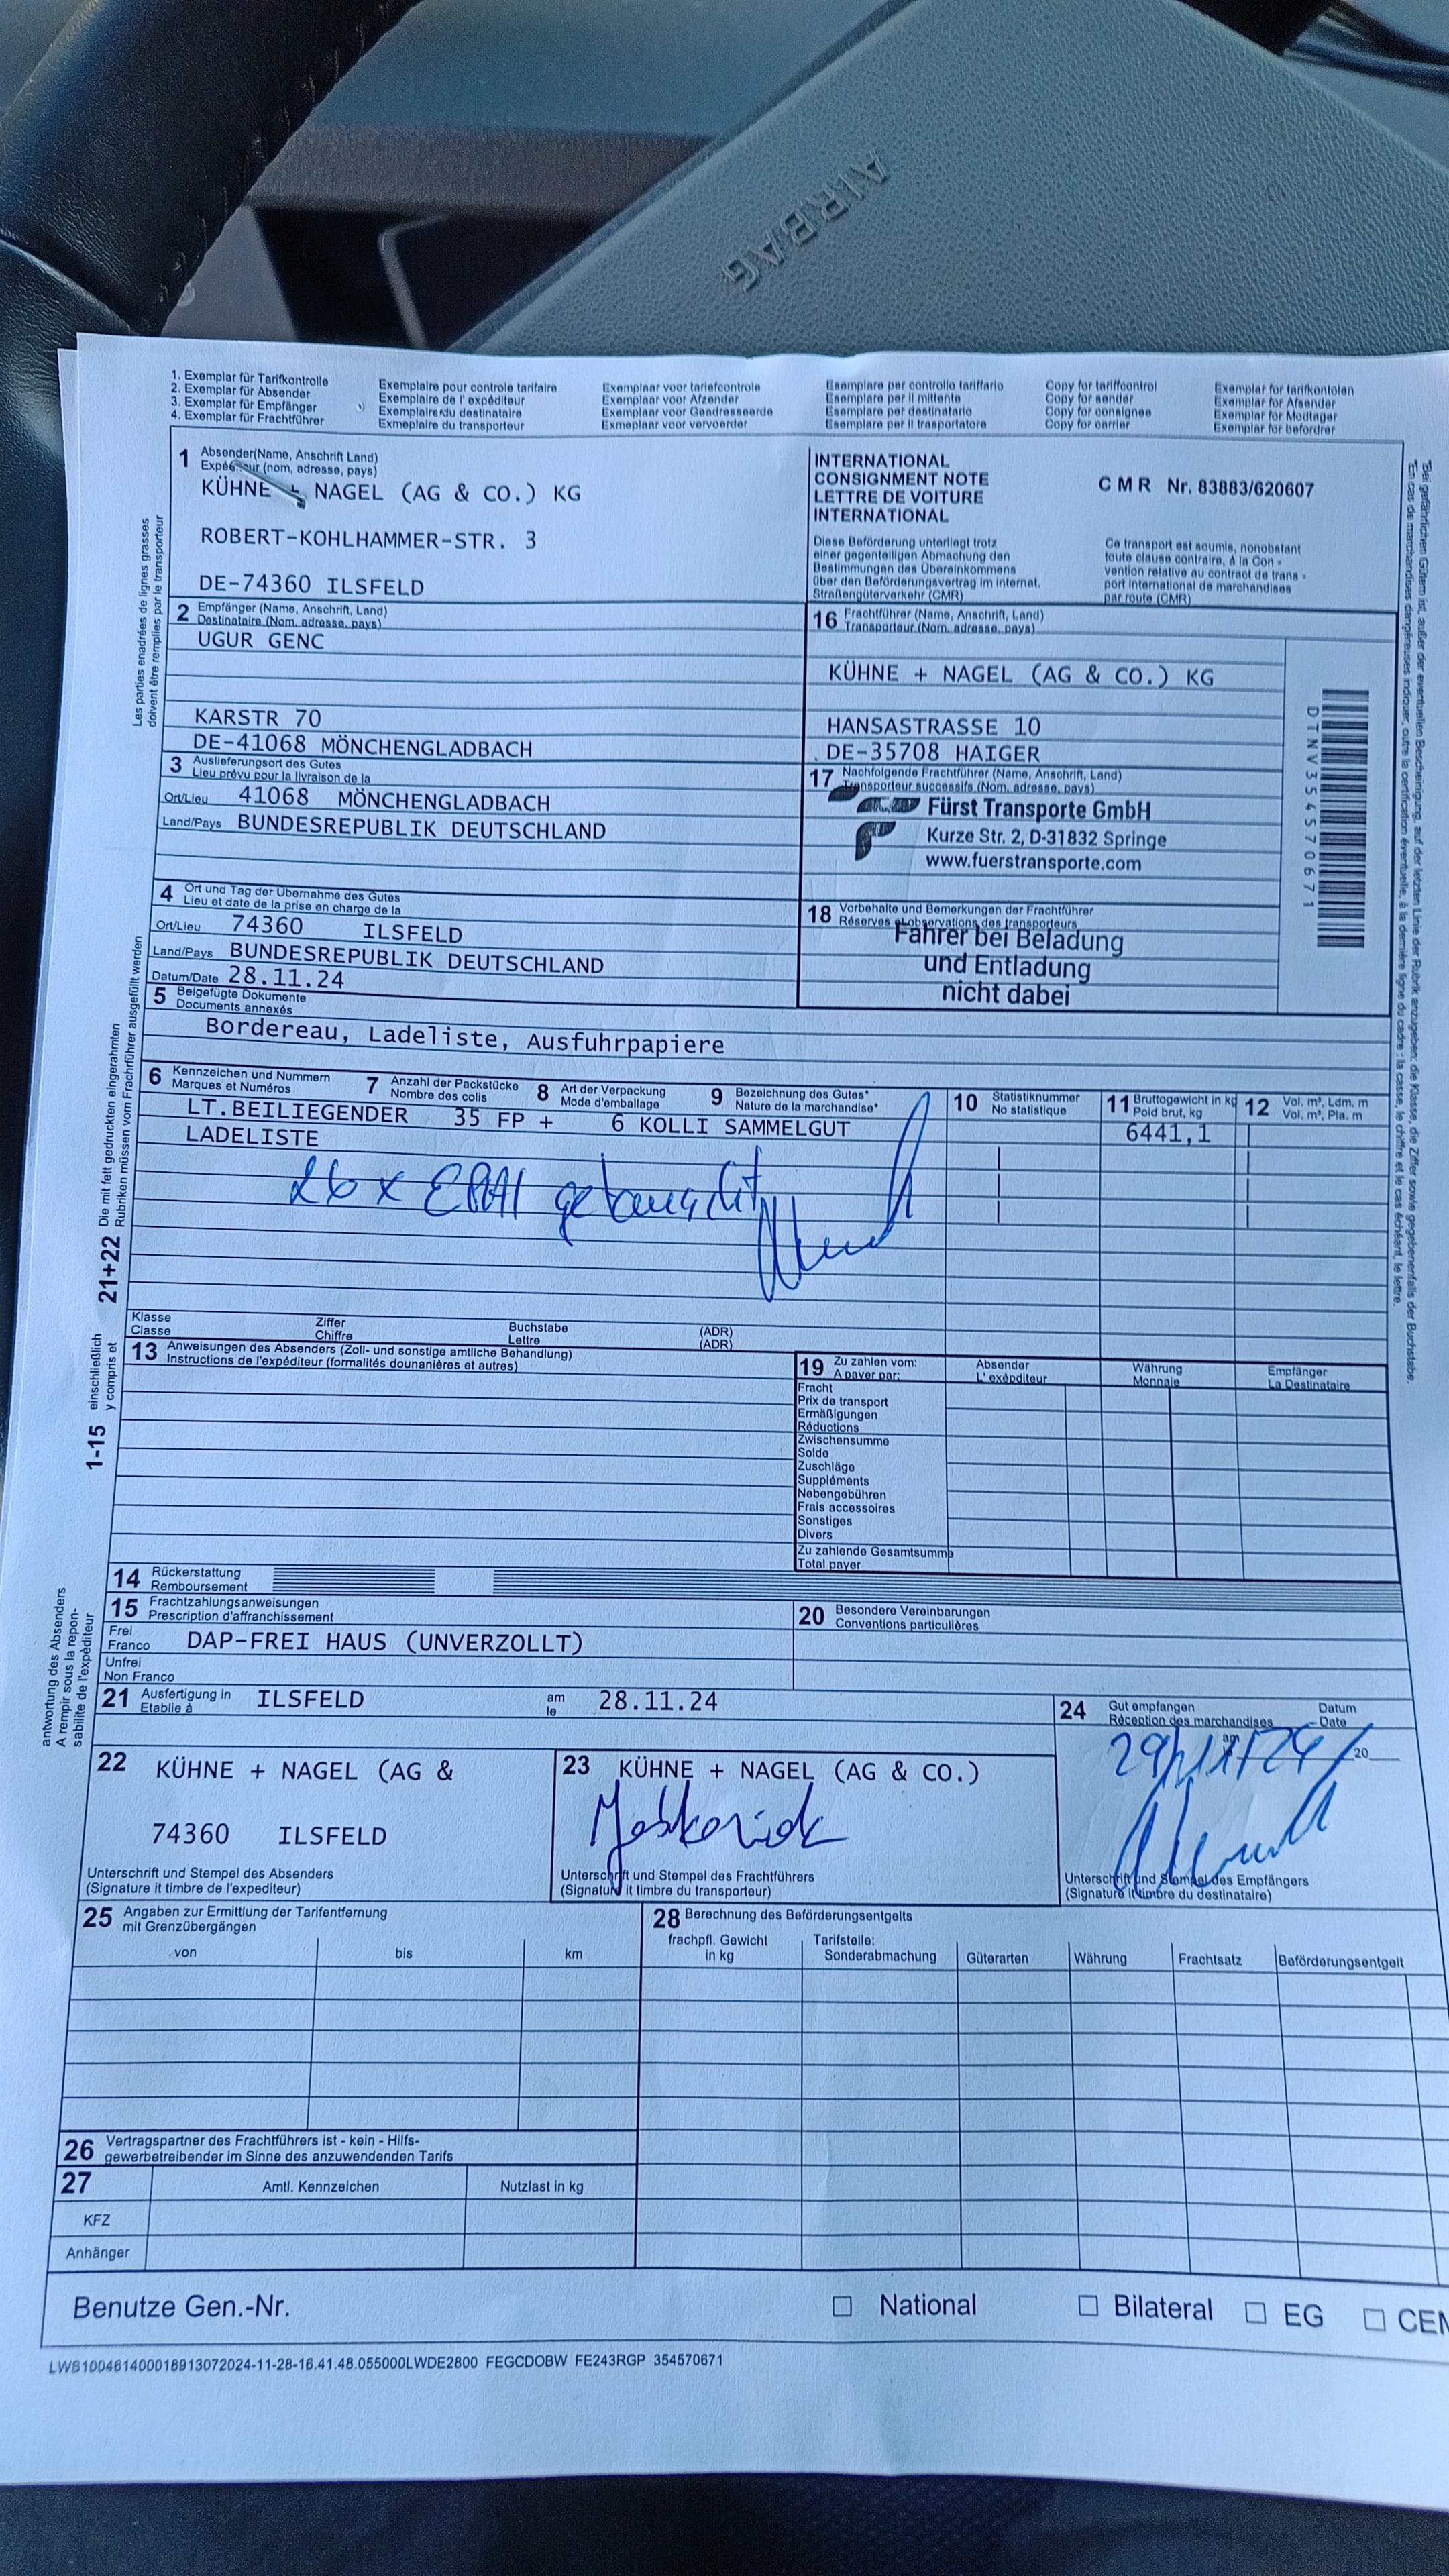 AIRBAG
1. Exemplar für Tarifkontrolle
2. Exemplar für Absender
3. Exemplar für Empfänger
4. Exemplar für Frachtführer
Exemplaire pour controle tarifaire
Exemplaire de l' expéditeur
Exemplaire du destinataire
Exmeplaire du transporteur
Exemplaar voor tariefcontrole
Exemplaar voor Afzender
Exemplaar voor Geadresseerde
Exmeplaar voor vervoerder
Esemplare per controllo tariffario
Esemplare per il mittente
Esemplare per destinatario
Esemplare per il trasportatore
Copy for tariffcontrol
Copy for sender
Copy for consignee
Copy for carrier
Exemplar for tarifkontolen
Exemplar for Afsender
Exemplar for Modtager
Exemplar for befordrer
1 Absender(Name, Anschrift Land)
(nom, adresse, pays)
KÜHNE + NAGEL (AG & CO.) KG
ROBERT-KOHLHAMMER-STR. 3
DE-74360 ILSFELD
INTERNATIONAL
CONSIGNMENT NOTE
LETTRE DE VOITURE
INTERNATIONAL
CMR Nr. 83883/620607
Diese Beförderung unterliegt trotz
einer gegenteiligen Abmachung den
Bestimmungen des Übereinkommens
über den Beförderungsvertrag im internat.
Straßengüterverkehr (CMR)
Ce transport est soumis, nonobstant
toute clause contraire, à la Con -
vention relative au contract de trans -
port international de marchandises
par route (CMR)
2 Empfänger (Name, Anschrift, Land)
Destinataire (Nom, adresse, pays)
UGUR GENC
KARSTR 70
DE-41068 MÖNCHENGLADBACH
16 Frachtführer (Name, Anschrift, Land)
Transporteur (Nom, adresse, pays)
KÜHNE + NAGEL (AG & CO.) KG
HANSASTRASSE 10
DE-35708 HAIGER
DTNV354570671
3 Auslieferungsort des Gutes
Lieu prévu pour la livraison de la
Ort/Lieu 41068 MÖNCHENGLADBACH
Land/Pays BUNDESREPUBLIK DEUTSCHLAND
17 Nachfolgende Frachtführer (Name, Anschrift, Land)
Transporteur successifs (Nom, adresse, pays)
Fürst Transporte GmbH
Kurze Str. 2, D-31832 Springe
www.fuerstransporte.com
4 Ort und Tag der Übernahme des Gutes
Lieu et date de la prise en charge de la
Ort/Lieu 74360 ILSFELD
Land/Pays BUNDESREPUBLIK DEUTSCHLAND
Datum/Date 28.11.24
18 Vorbehalte und Bemerkungen der Frachtführer
Réserves et observations des transporteurs
Fahrer bei Beladung
und Entladung
nicht dabei
5 Beigefügte Dokumente
Documents annexés
Bordereau, Ladeliste, Ausfuhrpapiere
6 Kennzeichen und Nummern
Marques et Numéros
7 Anzahl der Packstücke
Nombre des colis
8 Art der Verpackung
Mode d'emballage
9 Bezeichnung des Gutes*
Nature de la marchandise*
10 Statistiknummer
No statistique
11 Bruttogewicht in kg
Poid brut, kg
12 Vol. m³, Ldm. m
Vol. m³, Pla. m
LT.BEILIEGENDER 35 FP + 6 KOLLI SAMMELGUT
6441,1
LADELISTE
26 x EPAL getauscht
Klasse
Classe
Ziffer
Chiffre
Buchstabe
Lettre
(ADR)
(ADR)
13 Anweisungen des Absenders (Zoll- und sonstige amtliche Behandlung)
Instructions de l'expéditeur (formalités dounanières et autres)
19 Zu zahlen vom:
A payer par:
Absender
L' exépditeur
Währung
Monnaie
Empfänger
La Destinataire
Fracht
Prix de transport
Ermäßigungen
Réductions
Zwischensumme
Solde
Zuschläge
Suppléments
Nebengebühren
Frais accessoires
Sonstiges
Divers
Zu zahlende Gesamtsumme
Total payer
14 Rückerstattung
Remboursement
15 Frachtzahlungsanweisungen
Prescription d'affranchissement
Frei
Franco
DAP-FREI HAUS (UNVERZOLLT)
Unfrei
Non Franco
20 Besondere Vereinbarungen
Conventions particulières
21 Ausfertigung in
Etablie à
ILSFELD
am
le
28.11.24
24 Gut empfangen
Réception des marchandises
Datum
Date
am
20
29/11/24
22 KÜHNE + NAGEL (AG &
74360 ILSFELD
Unterschrift und Stempel des Absenders
(Signature it timbre de l'expediteur)
23 KÜHNE + NAGEL (AG & CO.)
Unterschrift und Stempel des Frachtführers
(Signature it timbre du transporteur)
Unterschrift und Stempel des Empfängers
(Signature it timbre du destinataire)
25 Angaben zur Ermittlung der Tarifentfernung
mit Grenzübergängen
von
bis
km
28 Berechnung des Beförderungsentgelts
frachpfl. Gewicht
in kg
Tarifstelle:
Sonderabmachung
Güterarten
Währung
Frachtsatz
Beförderungsentgelt
26 Vertragspartner des Frachtführers ist - kein - Hilfs-
gewerbetreibender im Sinne des anzuwendenden Tarifs
27
Amtl. Kennzeichen
Nutzlast in kg
KFZ
Anhänger
Benutze Gen.-Nr.
National
Bilateral
EG
CEM
LWS100461400018913072024-11-28-16.41.48.055000LWDE2800 FEGCDOBW FE243RGP 354570671
Les parties enadrées de lignes grasses
doivent être remplies par le transporteur
21+22 Die mit fett gedruckten eingerahmten
Rubriken müssen vom Frachrführer ausgefüllt werden
1-15 einschließlich
y compris et
antwortung des Absenders
A rempir sous la repon-
sabilite de l'expéditeur